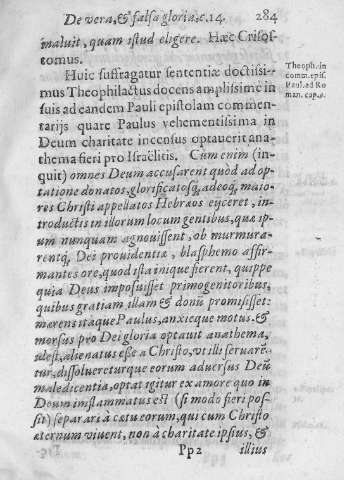 De vera, & falsa gloria, c. 14. 284
maluit, quam istud eligere. Hæc Crisos-
tomus.
Huic suffragatur sententiæ doctissi-
mus Theophilactus docens amplissime in
suis ad eandem Pauli epistolam commen-
tarijs quare Paulus vehementissima in
Deum charitate incensus optauerit ana-
thema fieri pro Israëlitis. Cum enim (in-
quit) omnes Deum accusarent quòd ad op-
tatione donatos, glorificatosq́, adeoq́, maio-
res Christi appellatos Hebræos eijceret, in-
troductis in illorum locum gentibus, quæ ip-
sum nunquam agnouissent, ob murmura-
rentq́, Dei prouidentiæ, blasphemo affir-
mantes ore, quod ista iniquè fierent, quippe
quia Deus imposuisset primogenitoribus,
quibus gratiam illam & donũ promisisset:
mærens itàque Paulus, anxieque motus. &
morsus pro Dei gloria optauit anathema,
idest, alienatus esse a Christo, vt illi seruarẽ-
tur, dissolueretur que eorum aduersus Deũ
maledicentia, optat igitur ex amore quo in
Deum inflammatus est (si modo fieri pos-
sit) separari à cœtu eorum, qui cum Christo
æternum viuent, non à charitate ipsius, &
Pp2 illius
Theoph. in
comm. epis.
Paul. ad Ro
man. cap. 9.